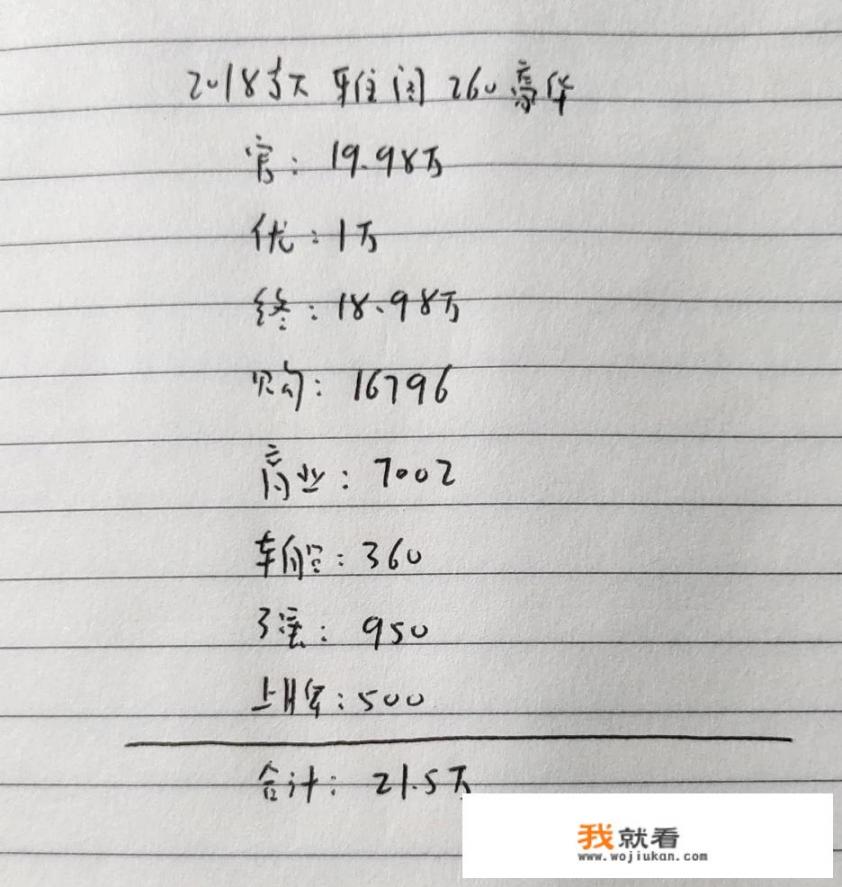 2018款 雅阁 260豪华
官：19.98万
优：1万
终：18.98万
购：16796
商业：7002
车船：360
交强：950
上牌：500
合计：21.5万
我就看
www.wojiukan.com